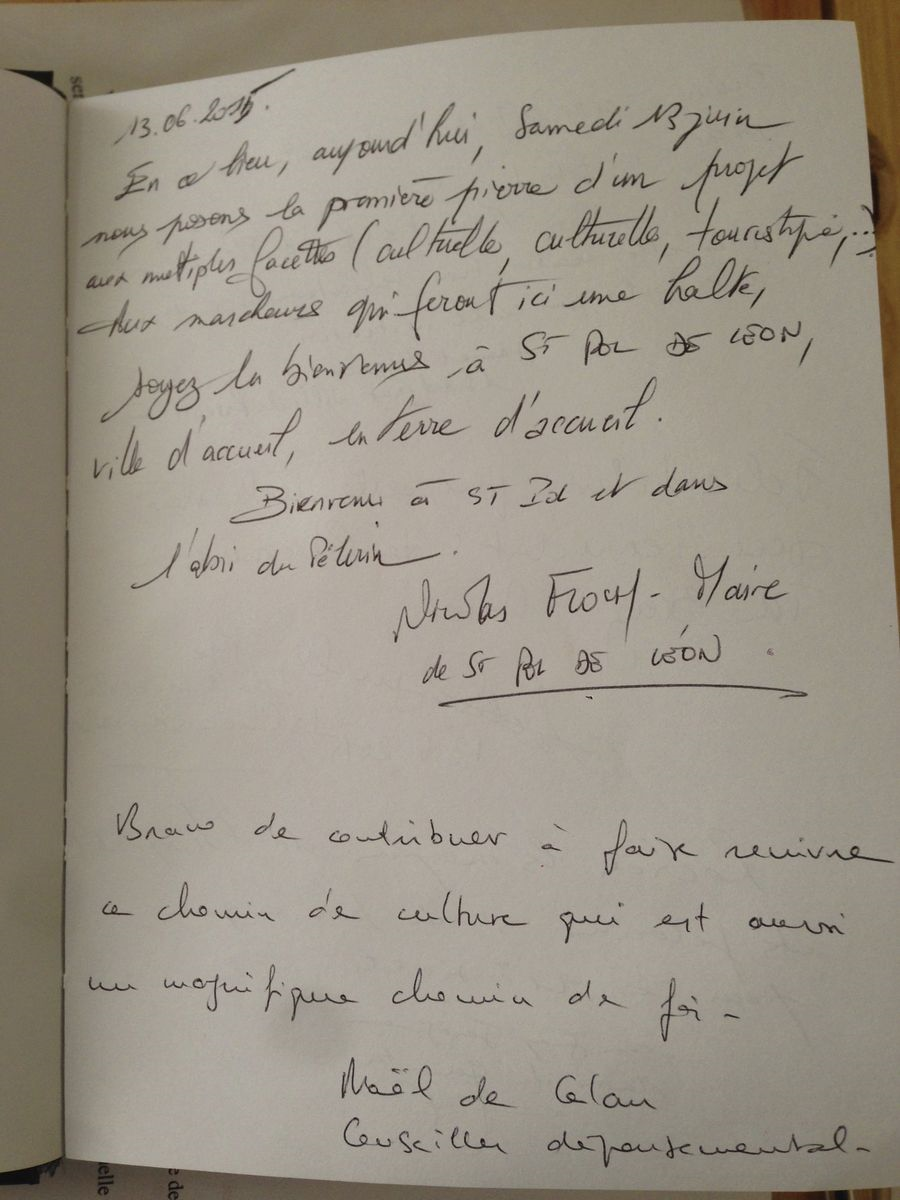 13.06.2015.
En ce lieu, aujourd'hui, Samedi 13 juin
nous posons la première pierre d'un projet
aux multiples facettes (cultuelle, culturelle, touristique,...)
Aux marcheurs qui feront ici une halte,
soyez les bienvenus à ST POL DE LÉON,
ville d'accueil, en terre d'accueil.
Bienvenue à ST Pol et dans
l'abri du Pèlerin.
Nicolas FLOCH - Maire
de ST POL DE LÉON
Bravo de contribuer à faire revivre
ce chemin de culture qui est aussi
un magnifique chemin de foi -
Maël de Calan
Conseiller départemental -